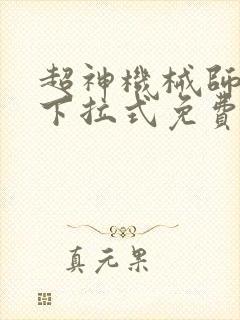 超神機械師
下拉式免費
真元果